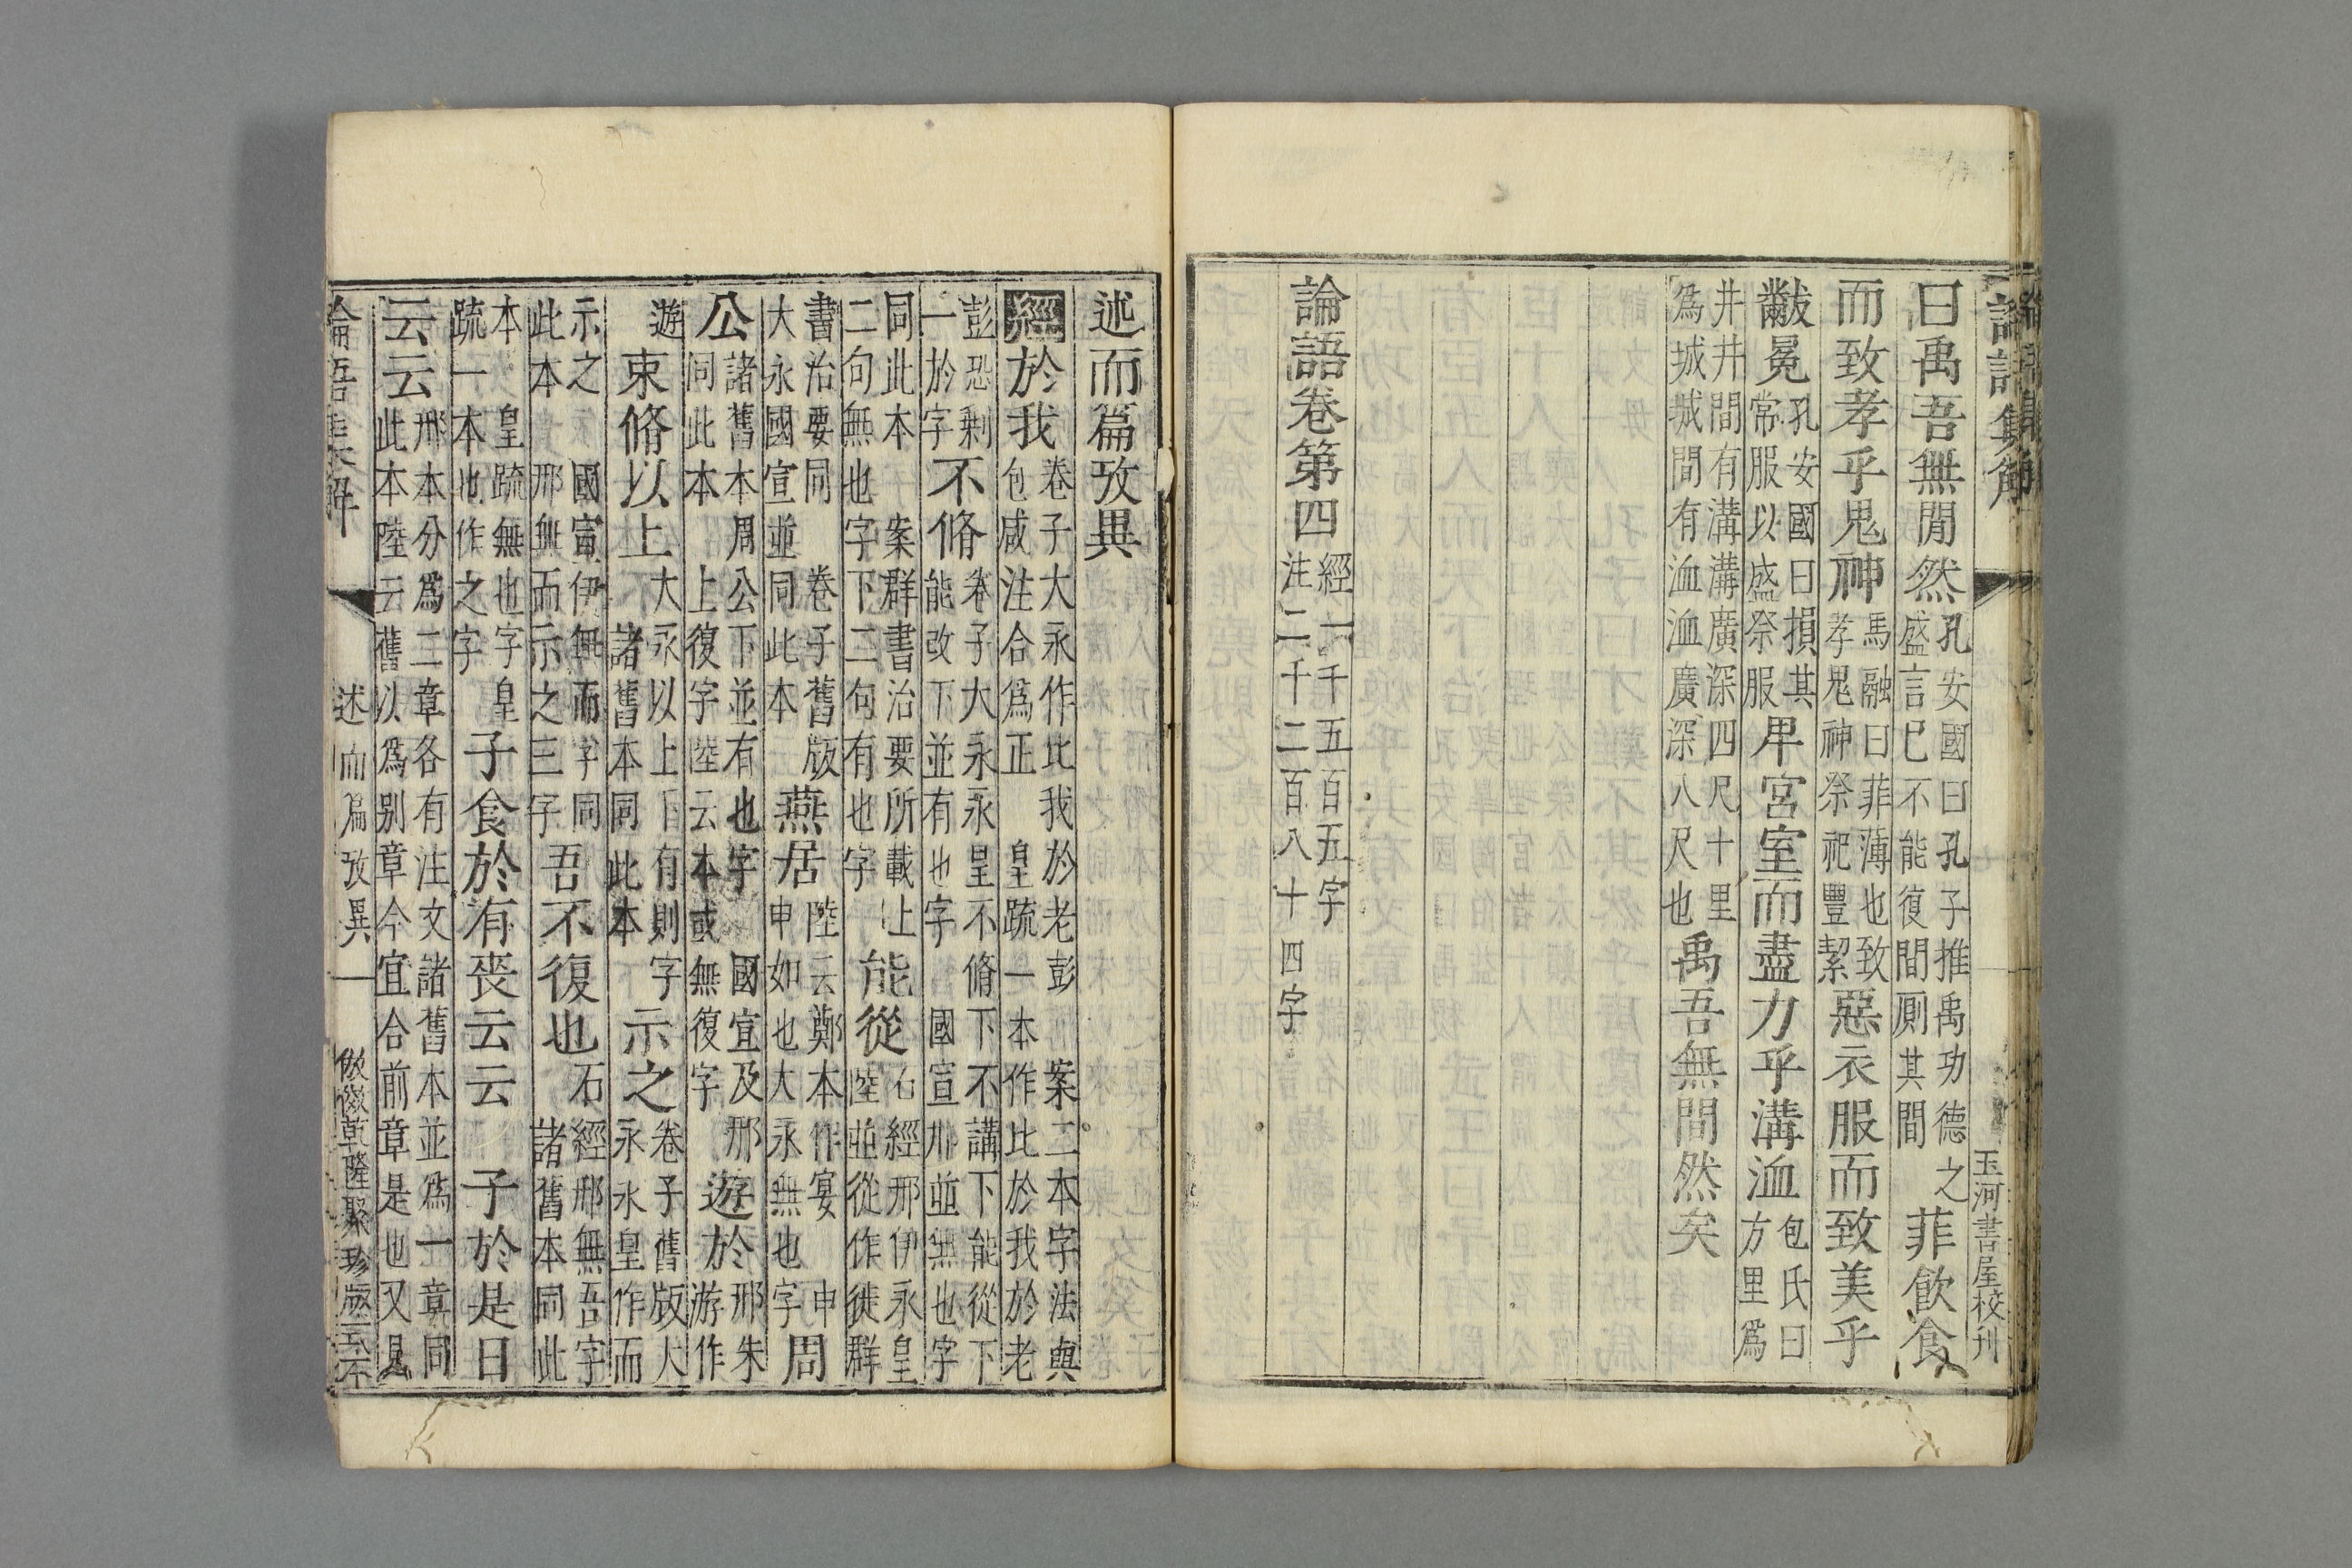 論語集解
玉河書屋校刊
曰禹吾無間然孔安國曰孔子推禹功德之盛言已不能復間厠其間菲飲食
而致孝乎鬼神馬融曰菲薄也致孝鬼神祭祀豐絜惡衣服而致美乎
黻冕孔安國曰損其常服以盛祭服卑宮室而盡力乎溝洫包氏曰方里爲
井井間有溝溝廣深四尺十里爲城城間有洫洫廣深八尺也禹吾無間然矣
論語卷第四經一千五百五字注二千二百八十四字
述而篇攷異
經於我卷子大永作比我於老彭包咸注合爲正皇疏一本作比於我於老案二本字法與
彭恐剩一於字不脩卷子大永永皇不脩下不講下能從下能改下並有也字國宣刑並無也字
同此本案群書治要所載上二句無也字下二句有也字能從石經邢伊永皇陸並從作徙群
書治要同卷子舊版大永國宣並同此本燕居陸云鄭本作宴申申如也大永無也字周
公諸舊本周公下並有也字國宣及邢同此本上復字陸云本或無復字遊於邢朱游作
遊束脩以上大永以上下有則字諸舊本同此本示之卷子舊版大永永皇作而
示之國宣伊無而字同此本邢無而示之三字吾不復也石經邢無吾字諸舊本同此
本皇疏無也字皇疏一本也作之字子食於有喪云云子於是日
云云邢本分爲二章各有注文諸舊本並爲一章同此本陸云舊以爲別章今宜合前章是也又見
論語集解
述而篇攷異
一
倣徽乾隆聚珍版